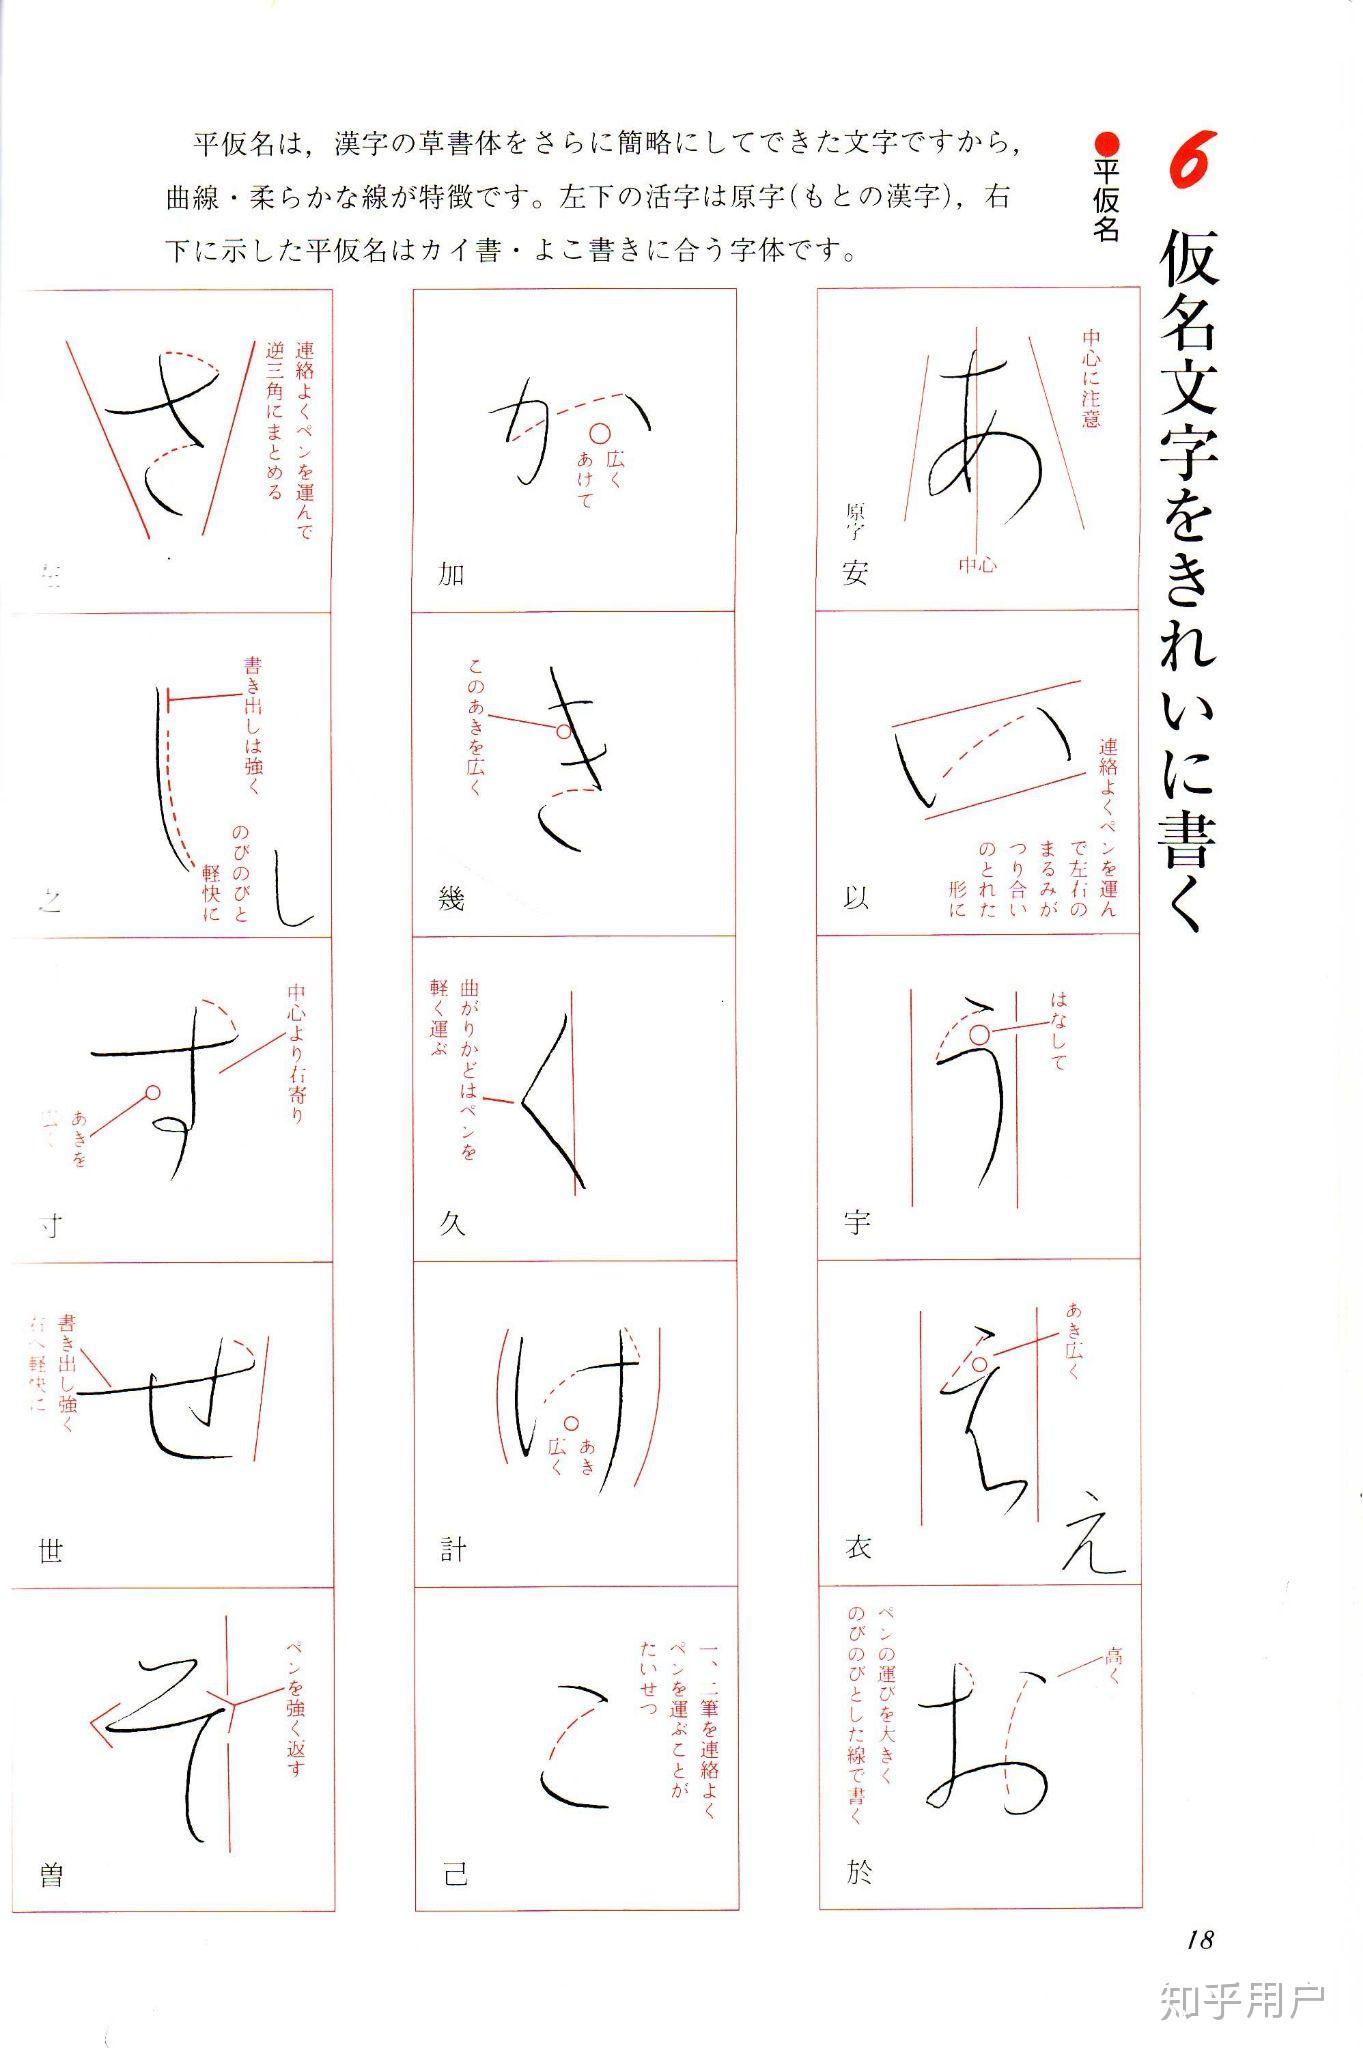 6 仮名文字をきれいに書く
●平仮名
平仮名は，漢字の草書体をさらに簡略にしてできた文字ですから，
曲線・柔らかな線が特徴です。左下の活字は原字(もとの漢字)，右
下に示した平仮名はカイ書・よこ書きに合う字体です。
中心に注意
あ
中心
原字
安
連絡よくペンを運ん
で左右の
まるみが
つり合い
のとれた
形に
い
以
はなして
う
宇
あき広く
え
え
衣
高く
お
ペンの運びを大きく
のびのびとした線で書く
於
か
広く
あけて
加
き
このあきを広く
幾
く
曲がりかどはペンを
軽く運ぶ
久
け
あき
広く
計
一、二筆を連絡よく
ペンを運ぶことが
たいせつ
こ
己
連絡よくペンを運んで
逆三角にまとめる
さ
書き出しは強く
のびのびと
軽快に
し
し
之
中心より右寄り
す
あきを
寸
せ
書き出し強く
右へ軽快に
世
ペンを強く返す
そ
曽
18
知乎用户